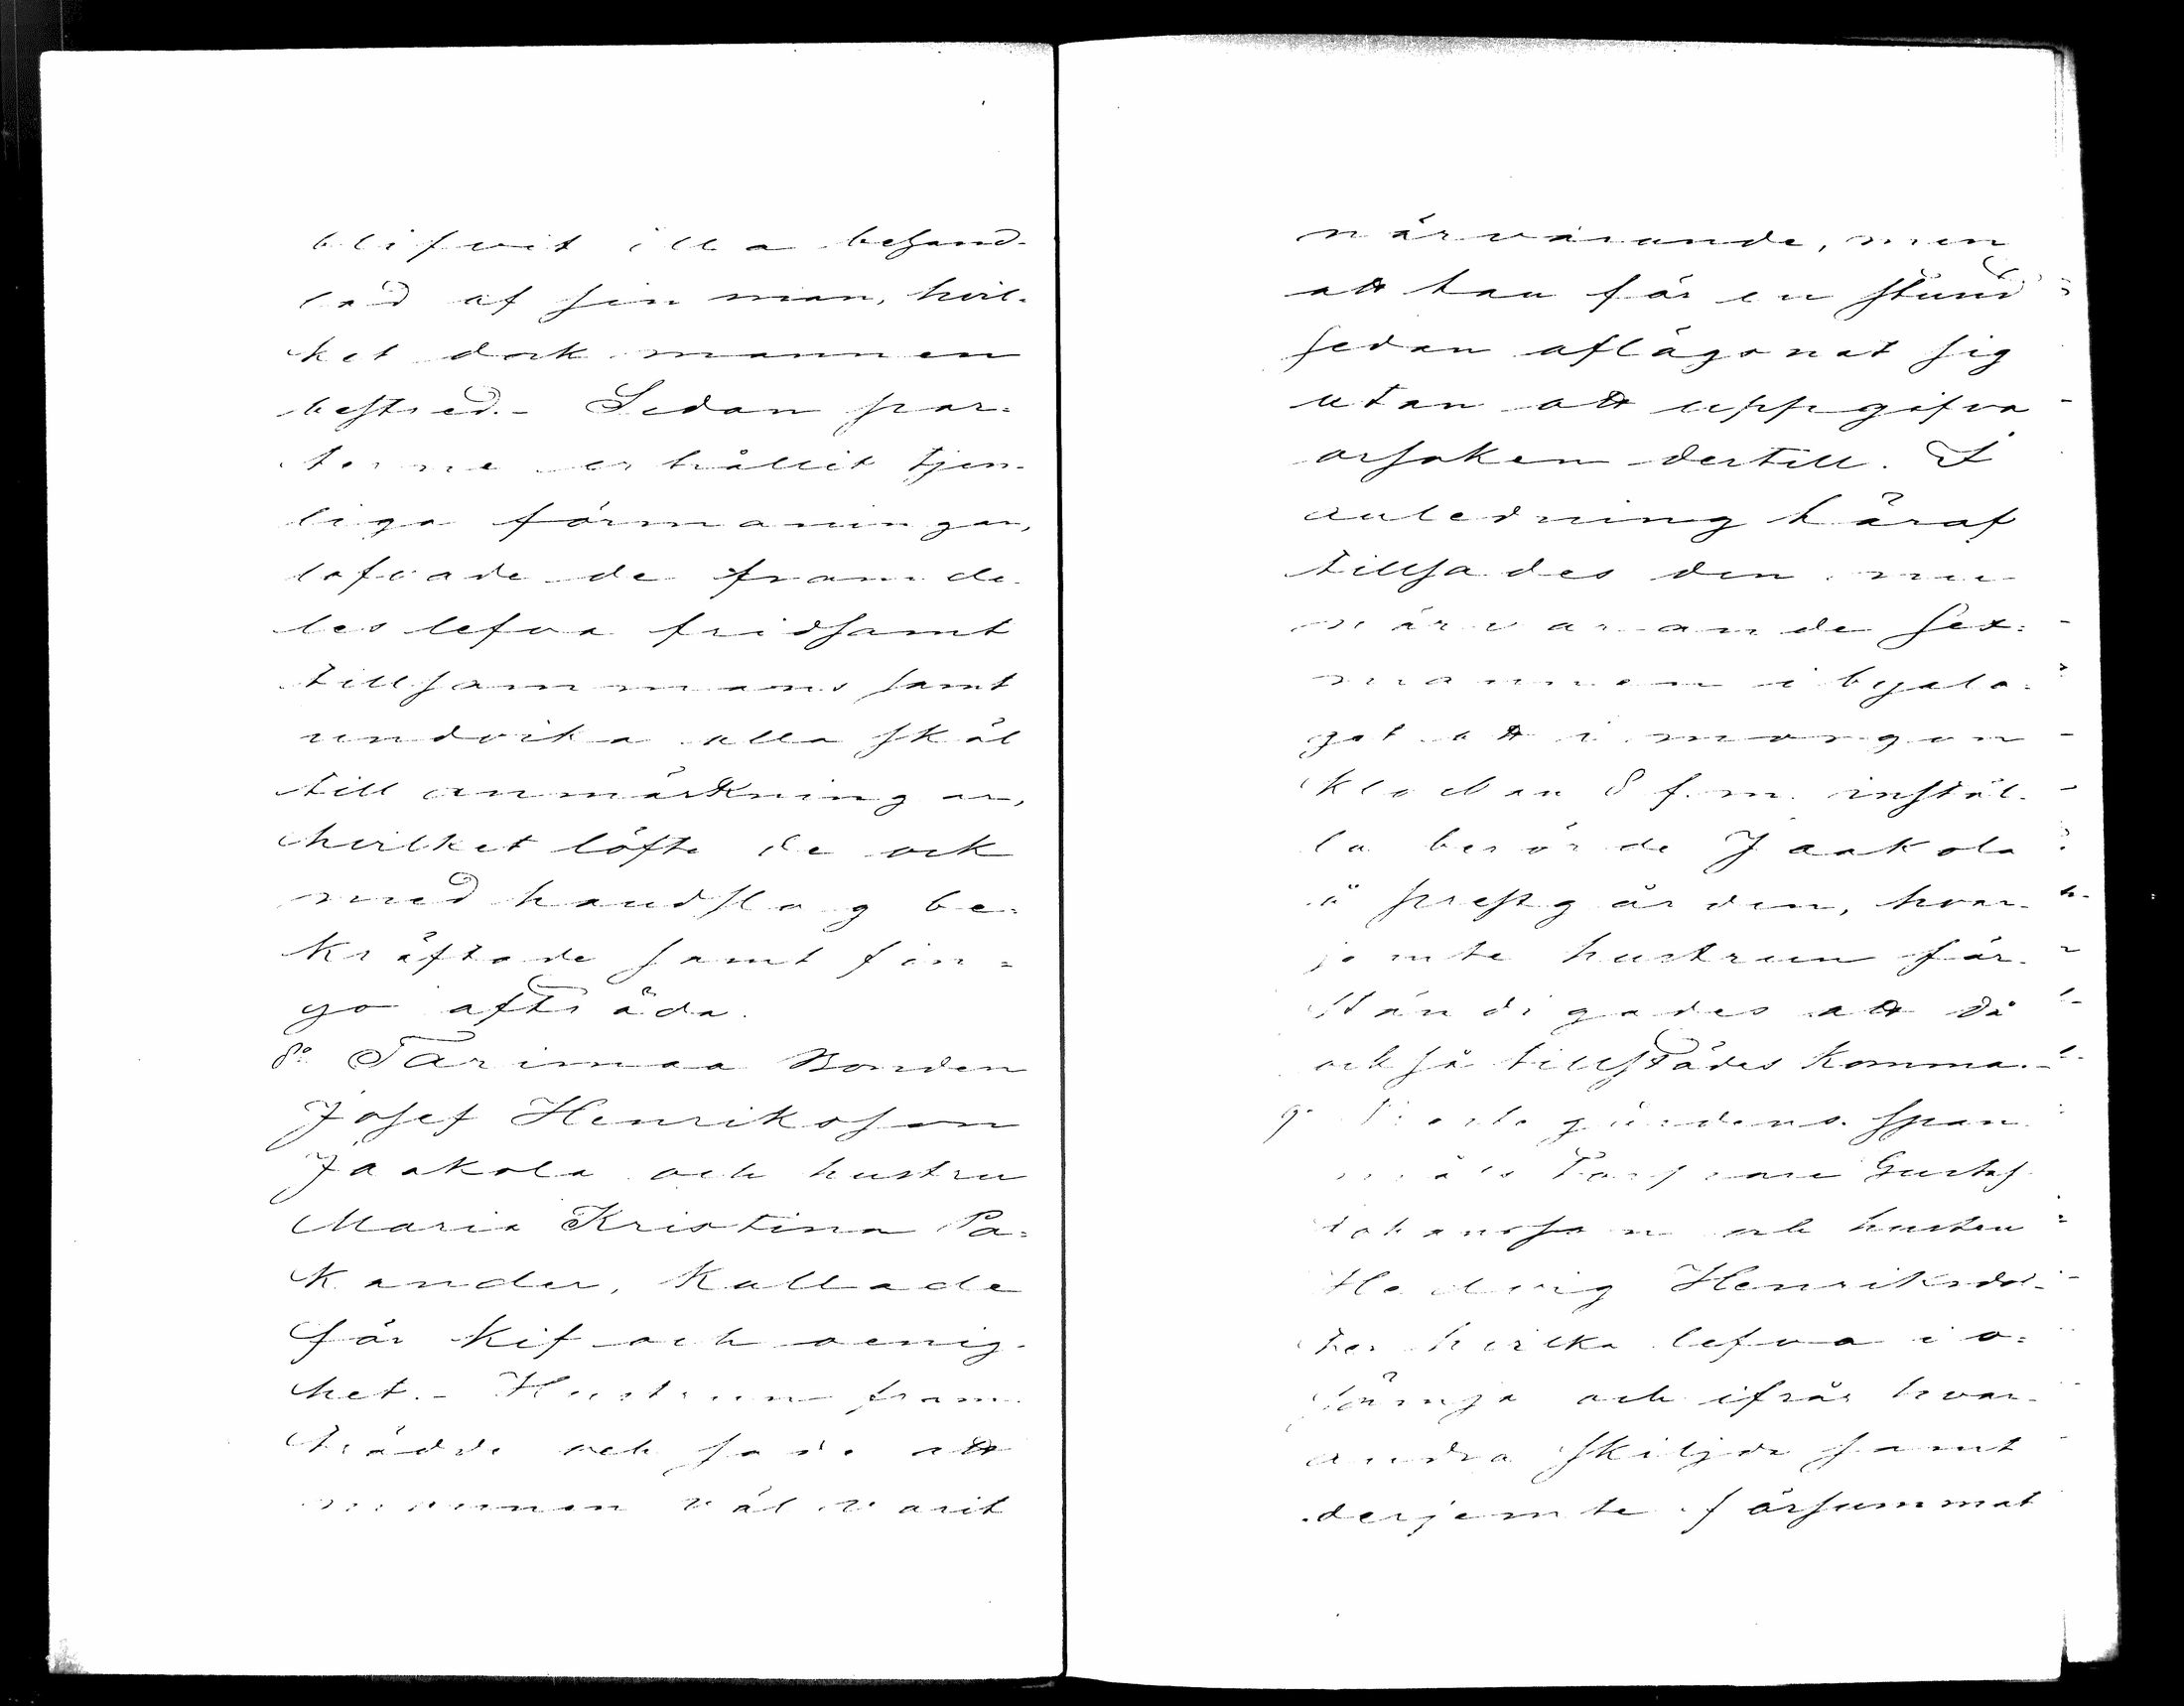 blifvit illa behand-
lad af sin man, hvil-
ket dock mannen
bestred. - Sedan par-
terne erhållit tjen-
liga förmaningar,
lofvade de fram de-
les lefva fridsamt
tillsammans samt
undvika alla skäl
till anmärkningar,
hvilket löfte de ock
med handslag be-
kräftade samt fin-
go afträda.
8o Tarimaa Bonden
Josef Henriksson
Jaakola och hustru
Maria Kristina Pa-
kander, kallade
för kif och oenig-
het. - Hustrun fram-
trädde och sade att
mannen väl varit
närvarande, men
att han för en stund
sedan aflägsnat sig
utan att uppgifva
orsaken dertill. I
anledning häraf
tillsades den nu
närvarande sex-
mannen i byala-
get att i morgon
klockan 8 f.m. instäl-
la berörde Jaakola
i prestgården, hvar-
jemte hustrun för-
ständigades att då
också tillstädes komma. -
9o Prestgårdens span-
måls Torpare Gustaf
Johansson och hustru
Hedvig Henriksdot-
ter hvilka lefva i o-
sämja och ifrån hvar-
andra skiljde samt
derjemte försummat